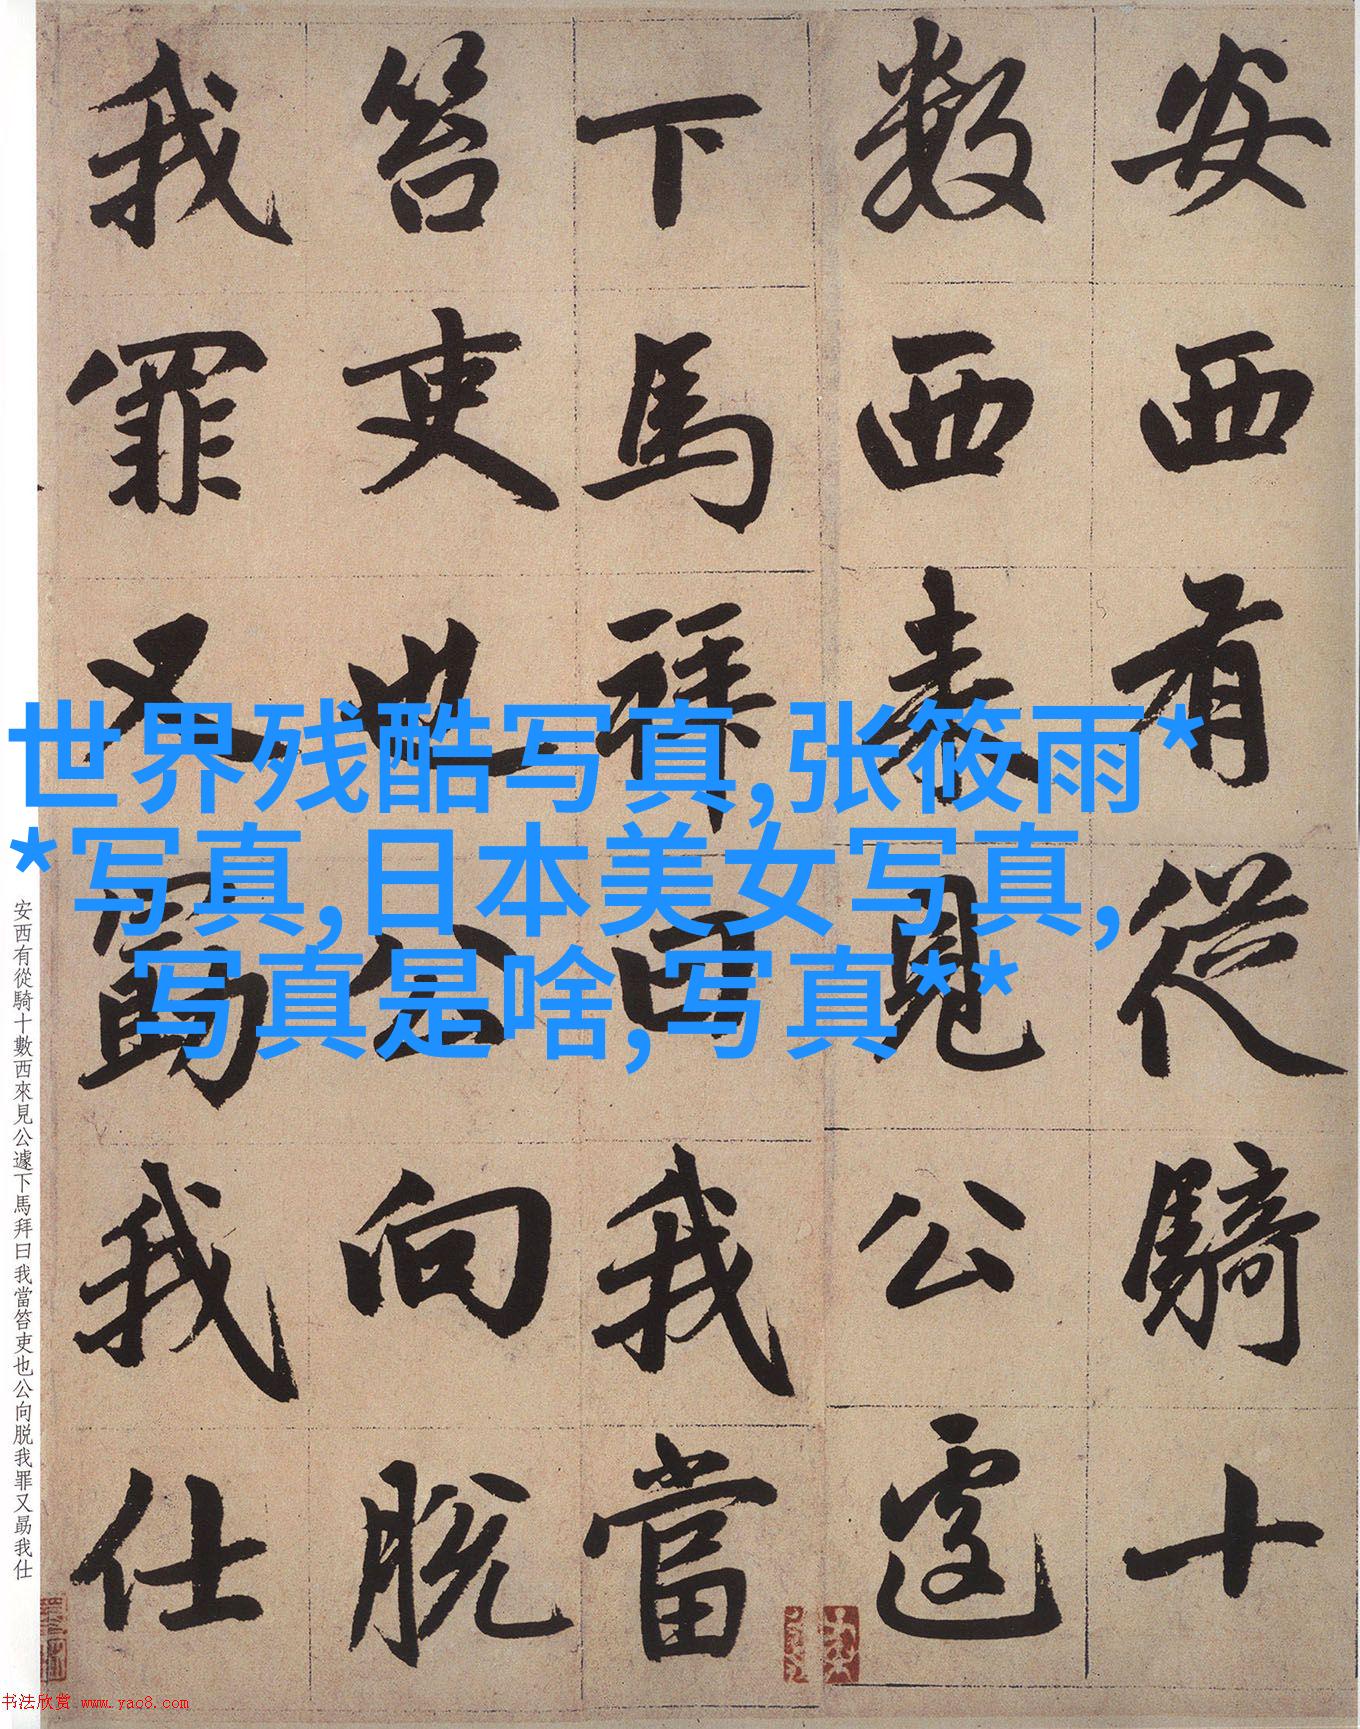 安西有從騎十
數西來見公遽
下馬拜曰我當
笞吏也公向脫
我罪又勗我仕
世界残酷写真,张筱雨*
*写真,日本美女写真,
写真是啥,写真**
安西有從騎十數西來見公遽下馬拜曰我當笞吏也公向脱我罪又勗我仕
书法欣赏 www.yac8.com